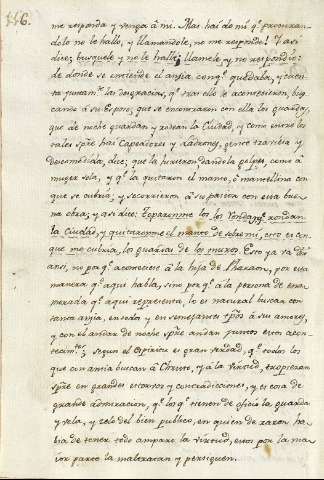 116.
me responda y venga à mi. Mas hai de mi q.e procuran-
dolo no le hallo, y llamandole, no me responde! Y asi
dice: busquele y no le hallé; llamele y no respondio:
de donde se entiende el ansia con q.e quedaba, y cuen-
ta juntam.te las desgracias, q.e tras ello le acontecieron, bus-
cando á su Esposo, que se encontraron con ella los guardas,
que de noche guardan y rodean la Ciudad, y como entre los
tales spre hai Capeadores y Ladrones, gente traviesa y
descomedida, dice; que la hirieron dandola golpes, como á
muger sola, y q.e la quitaron el manto, ò mantellina con
que se cubria; y socorrieron à su pasion con esta bue-
na obra; y asi dice: Toparonme los q.e rondan
la ciudad, y quitaronme el manto de sobre mi, esto es con
que me cubria, los guardas de los muros. Esto ya se di-
no por q.e aconteciese à la hija de Pharaon, por esta
manera q.e aqui habla, sino por q.e à la persona de ena-
morada q.e aqui representa, le es natural buscar con
tanta ansia, en todos y en semejantes tpos à su amores,
y con el andar de noche spre andan juntos estos acon-
tecim.tos; segun el Espiritu es gran verdad, q.e todos los
que con ansia buscan à Christo, y á la virtud, tropiezan
spre en grandes estorvos y contradicciones, y es cosa de
grande admiracion, q.e los q.e tienen de oficio la guarda
y vela, y zelo del bien publico, en quien de razon ha-
bia de tener todo amparo la virtud, estos por la ma-
ior parte la maltratan y persiguen.